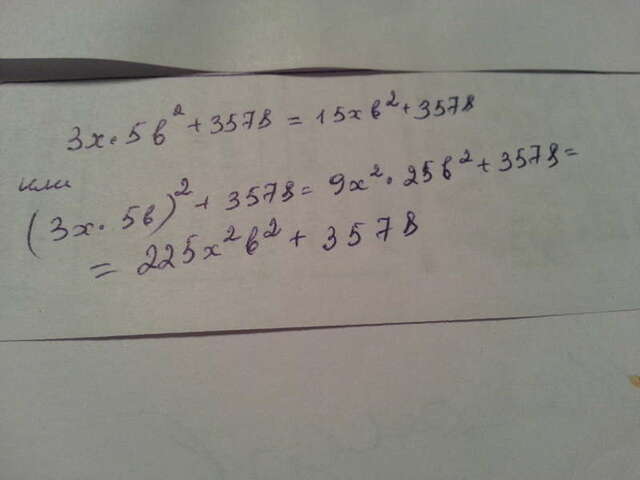 3x·5b²+3578 = 15xb²+3578
или
(3x·5b)²+3578 = 9x²·25b²+3578=
= 225x²b²+3578